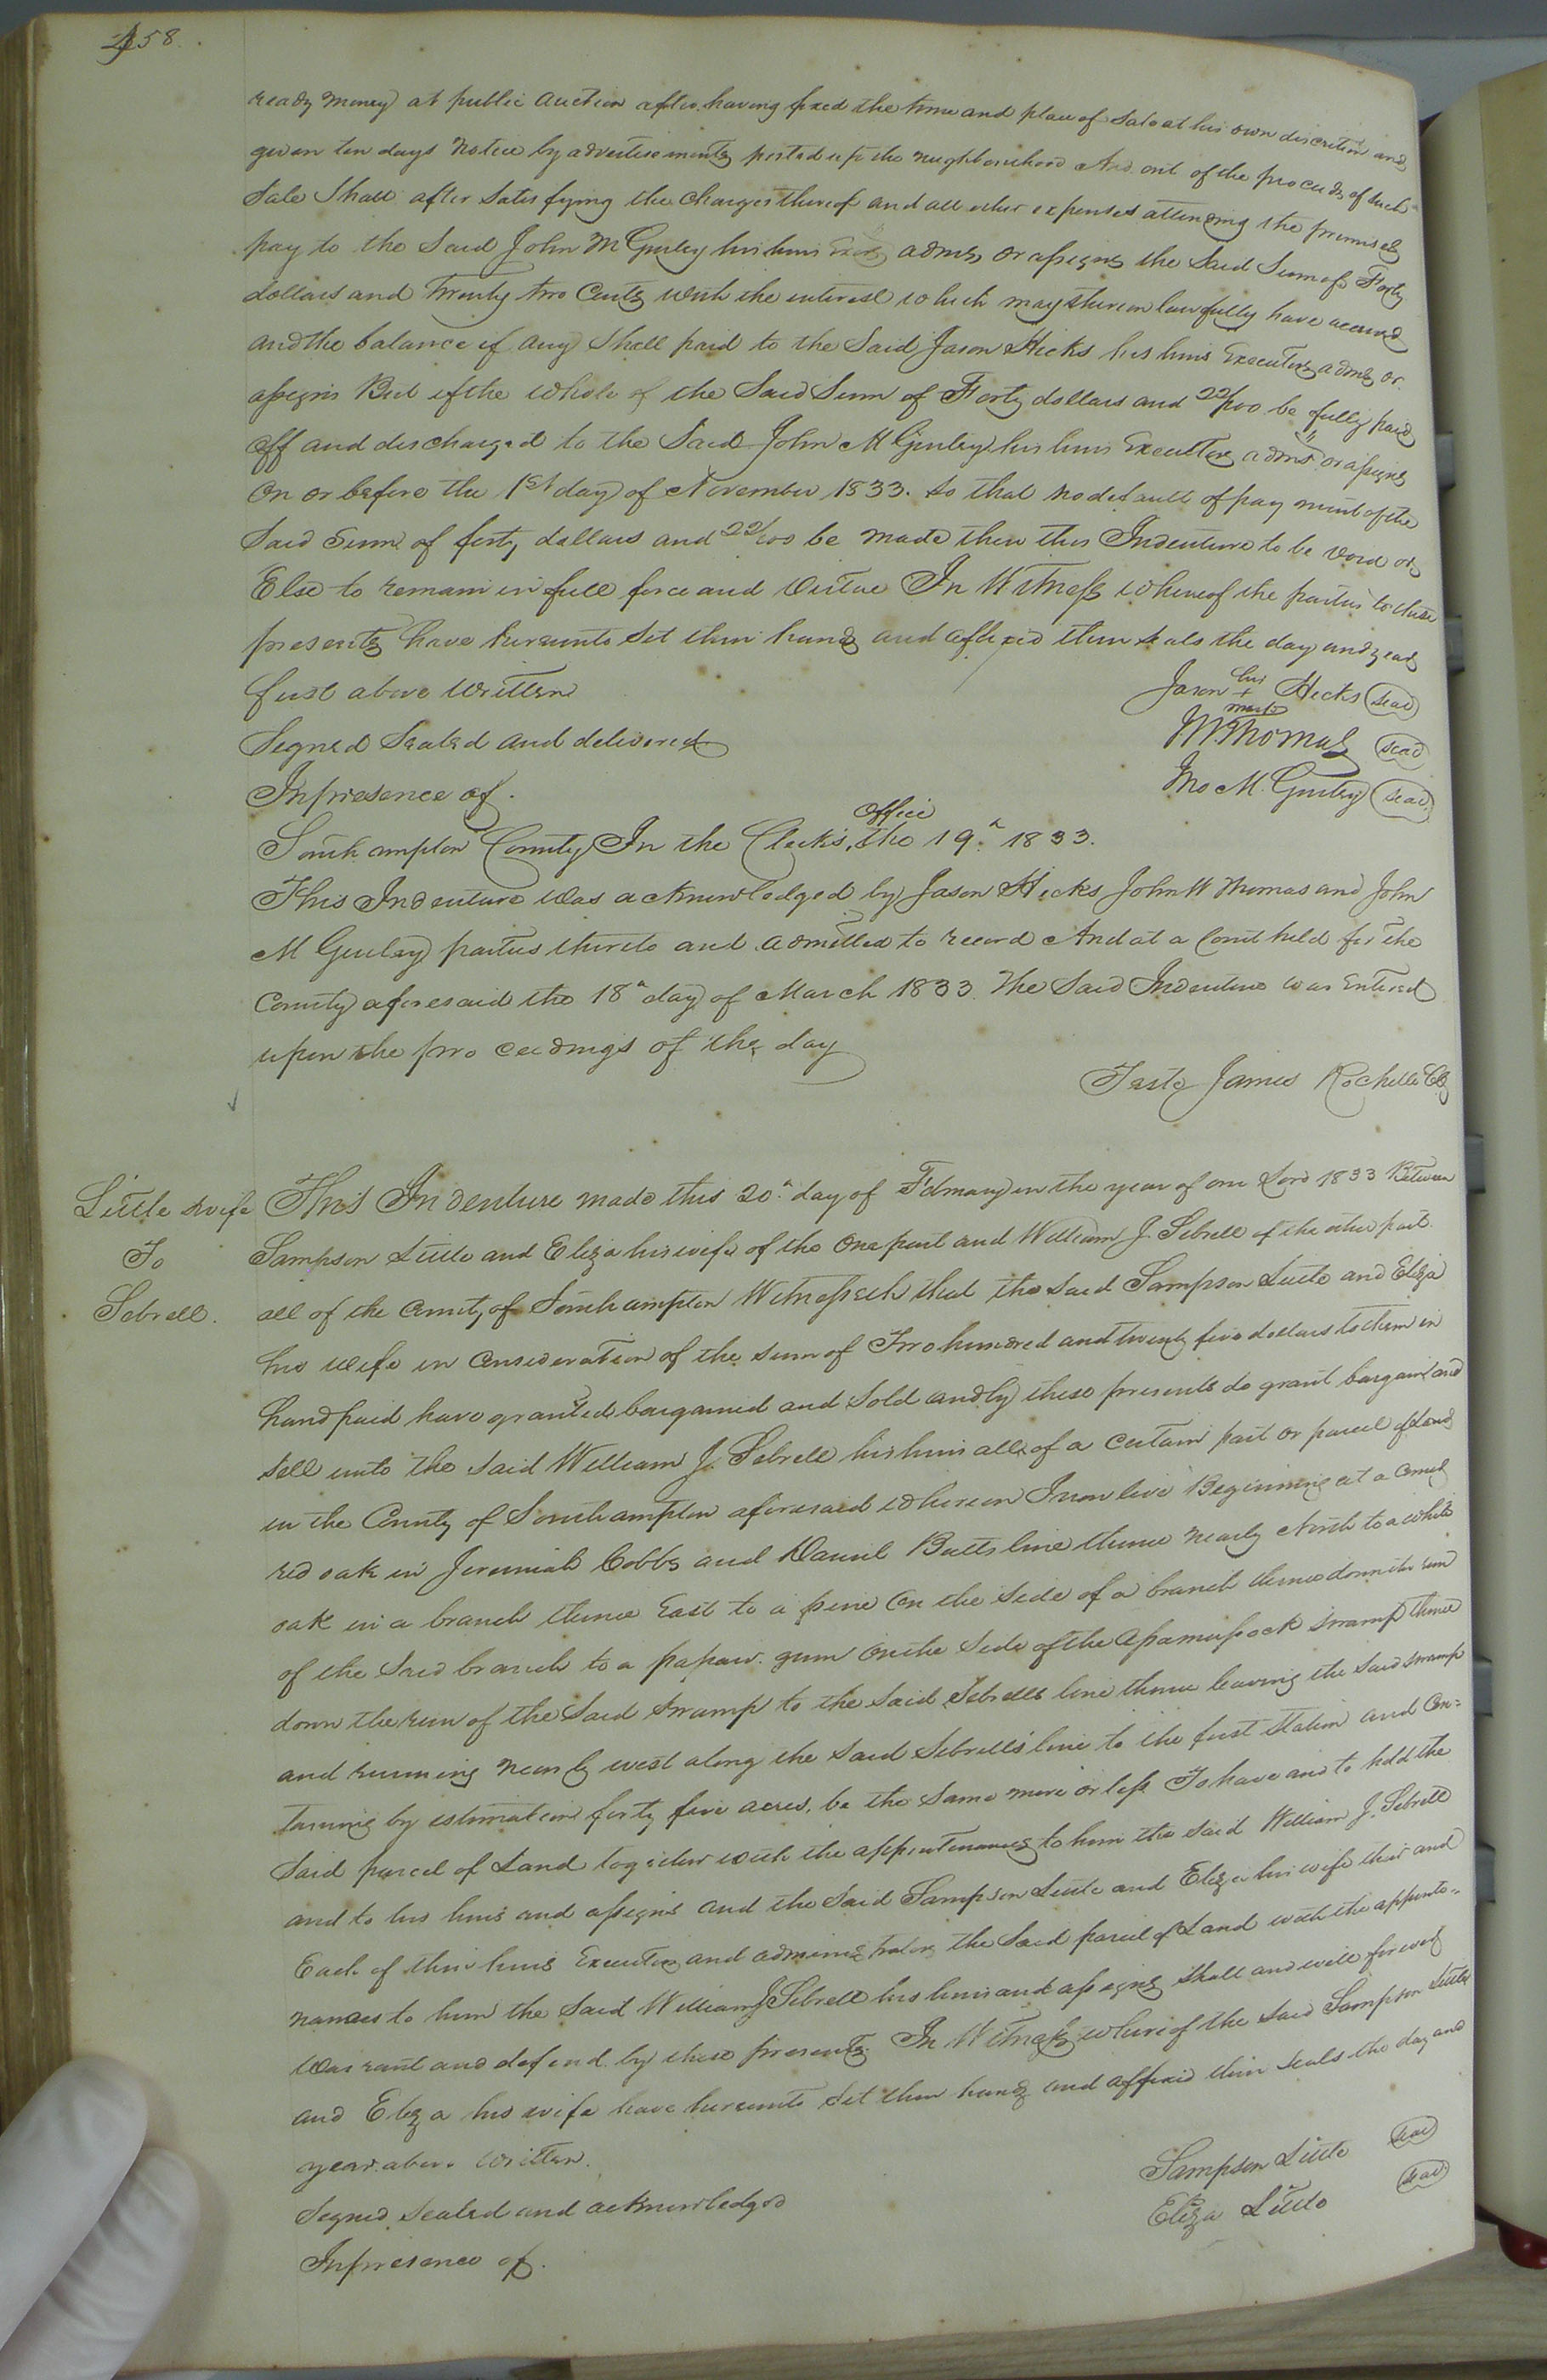 458.
ready money at public auction after having fixed the time and place of Sale at his own discretion and
given ten days Notice by advertisements posted up the neighbourhood And out of the proceeds of such
Sale Shall after Satisfying the charges thereof and all other expenses attending the premises
pay to the Said John M Gurley his heirs Exors adms or assigns the Said Sum of Forty
dollars and Twenty two Cents with the interest which may thereon lawfully have accrued
and the balance if any Shall paid to the Said Jason Hicks his heirs Executors adms or
assigns But if the whole of the Said Sum of Forty dollars and 22/100 be fully paid
off and discharged to the Said John M Gurley his heirs Executors adms or assigns
On or before the 1st day of November 1833. So that no default of payment of the
Said Sum of forty dollars and 22/100 be made then this Indenture to be void or
Else to remain in full force and Virtue In Witness whereof the parties to these
presents have hereunto Set their hands and affixed their seals the day and year
first above Written
Jason his + mark Hicks (seal)
Signed Sealed and delivered
W. Thomas (seal)
In presence of.
Jno M. Gurley (seal)
Southampton County In the Clerk's Office the 19th 1833.
This Indenture was acknowledged by Jason Hicks John W Thomas and John
M Gurley parties thereto and admitted to record And at a Court held for the
County aforesaid the 18th day of March 1833. The Said Indenture was Entered
upon the proceedings of the day
Teste James Rochelle Clk
Little & wife
To
Sebrell.
This Indenture made this 20th day of February in the year of our Lord 1833 Between
Sampson Little and Eliza his wife of the One part and William J. Sebrell of the other part
all of the County of Southampton Witnesseth that the Said Sampson Little and Eliza
his wife in Consideration of the sum of Two hundred and twenty five dollars to them in
hand paid have granted bargained and Sold and by these presents do grant bargain and
sell unto the said William J. Sebrell his heirs all of a certain part or parcel of Land
in the County of Southampton aforesaid whereon I now live Beginning at a Corner
red oak in Jeremiah Cobbs and Daniel Butts line thence nearly North to a white
oak in a branch thence East to a pine On the Side of a branch thence down the run
of the Said branch to a papaw. gum On the Side of the Assamusock swamp thence
down the run of the Said Swamp to the Said Sebrells line thence leaving the said swamp
and running nearly west along the said Sebrells' line to the first Station and Con=
taining by estimation forty five acres, be the Same more or less To have and to hold the
Said parcel of Land together with the appurtenances to him the said William J. Sebrell
and to his heirs and assigns and the Said Sampson Little and Eliza his wife their and
Each of their heirs Executors and administrators the Said parcel of Land with the appurte=
nances to him the Said William J Sebrell his heirs and assigns Shall and will forever
Warrant and defend by these presents. In Witness whereof the Said Sampson Little
and Eliza his wife have hereunto Set their hands and affixed their Seals the day and
year above written.
Sampson Little (seal)
Signed, Sealed and acknowledged
Eliza Little (seal)
In presence of.